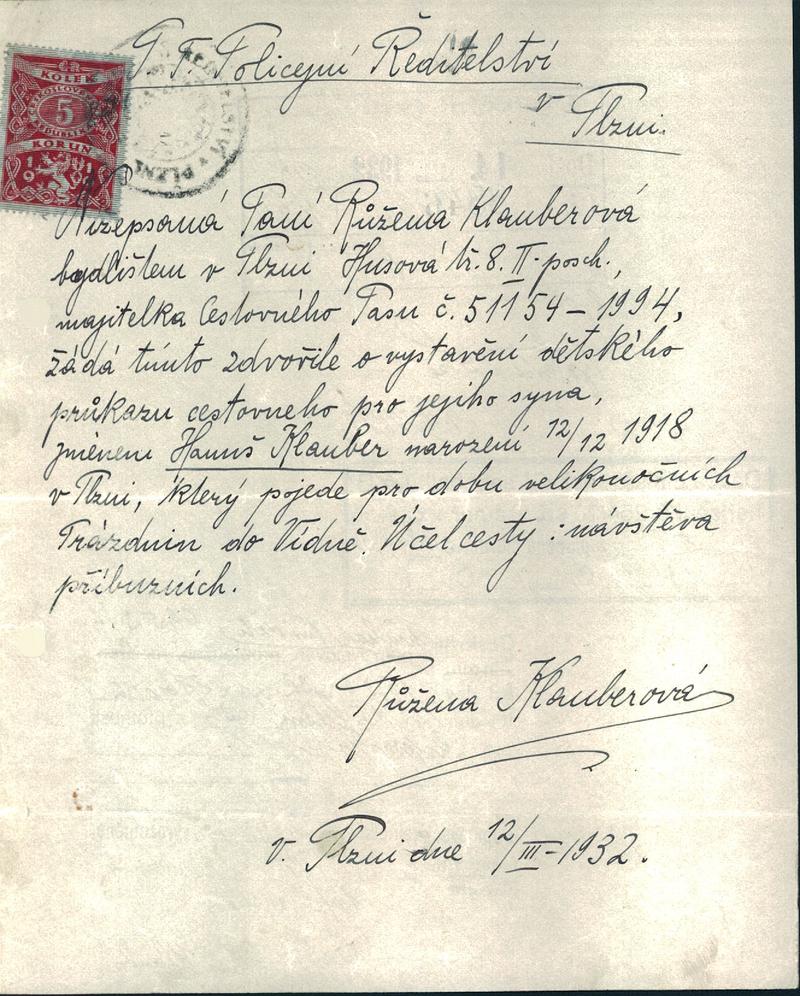 P. T. Policejní Ředitelství
v Plzni.
KOLEK
5
KORUN
19 19
PLZNI
Nížepsaná Paní Růžena Klauberová
bydlištem v Plzni Husová tř. 8. II. posch.,
majitelka Cestovného Pasu č. 51154 – 1994,
žádá tímto zdvořile o vystavění dětského
průkazu cestovneho pro jejiho syna,
jménem Hanuš Klauber narození 12/12 1918
v Plzni, který pojede pro dobu velikonočních
Prázdnin do Vídně. Účel cesty : návštěva
příbuzních.
Růžena Klauberová
v. Plzni dne 12/III – 1932.